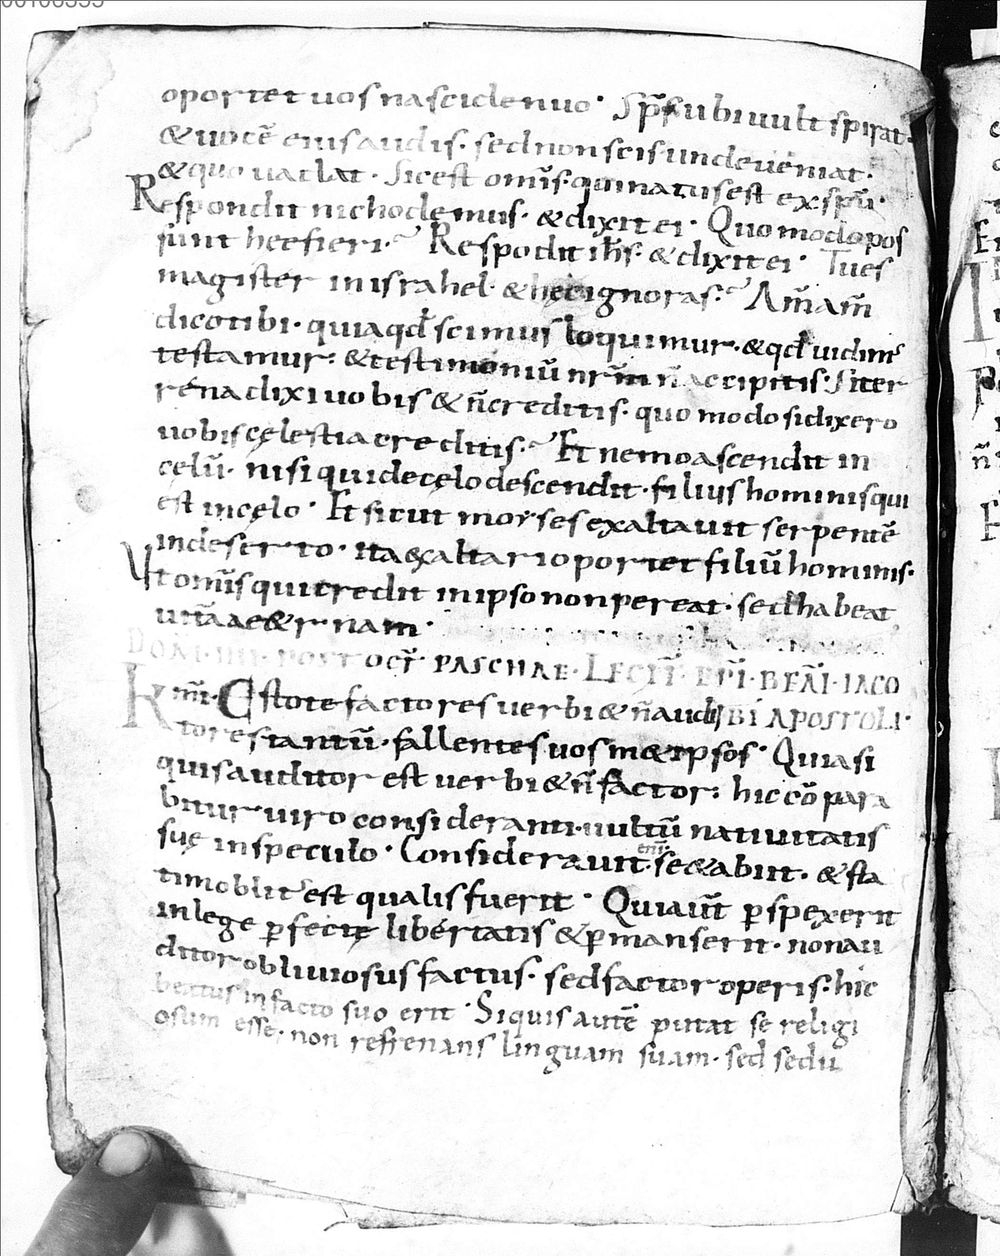 oportet uos nasci denuo · Sp̄s ubi uult spirat ·
& uocē eius audis · sed non scis unde ueniat ·
& quo uadat · Sic est om̄s qui natus est ex sp̄u ·
Respondit nichodemus · & dixit ei · Quomodo pos
sunt hec fieri · Respōdit ih̄s · & dixit ei · Tu es
magister in israhel · & hec ignoras · Am̄ am̄
dico tibi · quia qd̄ scimus loquimur · & qd̄ uidim᾽
testamur : & testimoniū nr̄m n̄ accipitis · Si ter
rena dixi uobis & n̄ creditis · quo modo si dixero
uobis cęlestia creditis · Et nemo ascendit in
cęlū · nisi qui de cęlo descendit · filius hominis qui
est in cęlo · Et sicut moyses exaltauit serpentē
in deserto · ita exaltari oportet filiū hominis ·
Ut om̄s qui credit in ipso non pereat · sed habeat
uitā aet&rnam ·
DOM̄ · IIII · POST OCT̄ PASCHAE · LECTĪ · EPĪ · BEATĪ · IACO
K m̄i · Estote factores uerbi & n̄ audi BI APOSTOLI ·
tores tantū · fallentes uosm&ipsos · Quia si
quis auditor est uerbi & n̄ factor : hic cōpara
bitur uiro consideranti uultū natiuitatis
suę in speculo · Considerauit enī · se & abiit · & sta
tim oblit᾽ est qualis fuerit · Qui aūt p̱spexerit
in lege p̱fectę libertatis & p̱manserit · non au
ditor obliuiosus factus · sed factor operis : hic
beatus in facto suo erit · Si quis autē putat se religi
osum esse · non refrenans linguam suam · sed sedu